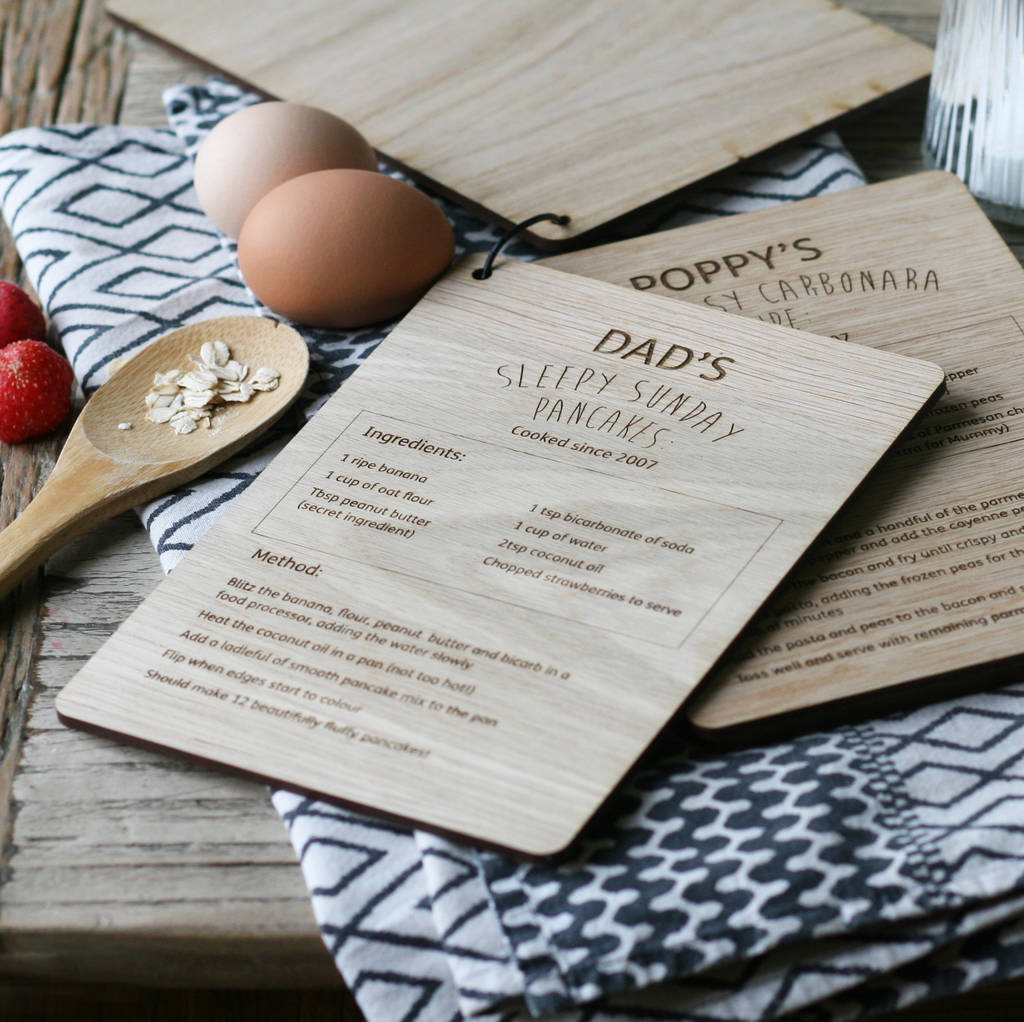 DAD'S
SLEEPY SUNDAY
PANCAKES:
Cooked since 2007
Ingredients:
1 ripe banana
1 cup of oat flour
Tbsp peanut butter
(secret ingredient)
1 tsp bicarbonate of soda
1 cup of water
2tsp coconut oil
Chopped strawberries to serve
Method:
Blitz the banana, flour, peanut butter and bicarb in a
food processor, adding the water slowly
Heat the coconut oil in a pan (not too hot!)
Add a ladleful of smooth pancake mix to the pan
Flip when edges start to colour
Should make 12 beautifully fluffy pancakes!
POPPY'S
CARBONARA
frozen peas
of Parmesan
for Mummy)
and a handful of the
and add the cayenne
the bacon and fry until crispy and
adding the frozen peas for the
minutes
the pasta and peas to the bacon and
Toss well and serve with remaining